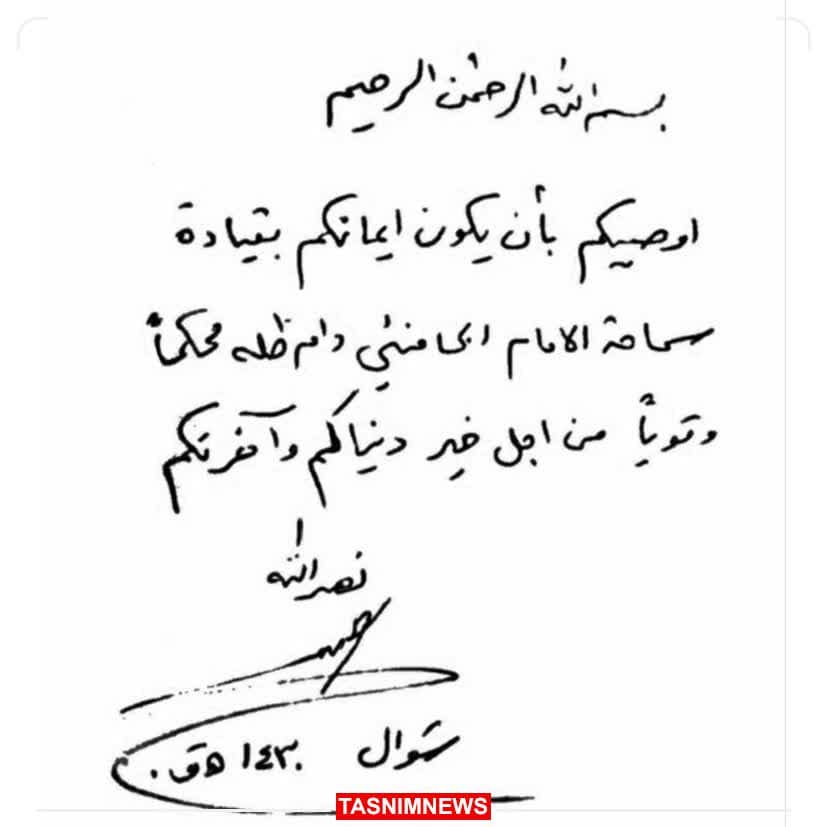 بسم الله الرحمن الرحيم
اوصيكم بأن يكون ايمانكم بقيادة
سماحة الامام الخامنئي دام ظله محكماً
وقوياً من اجل خير دنياكم وآخرتكم
نصر الله
حسن
شوال ١٤٣٠ هـ ق.
TASNIMNEWS